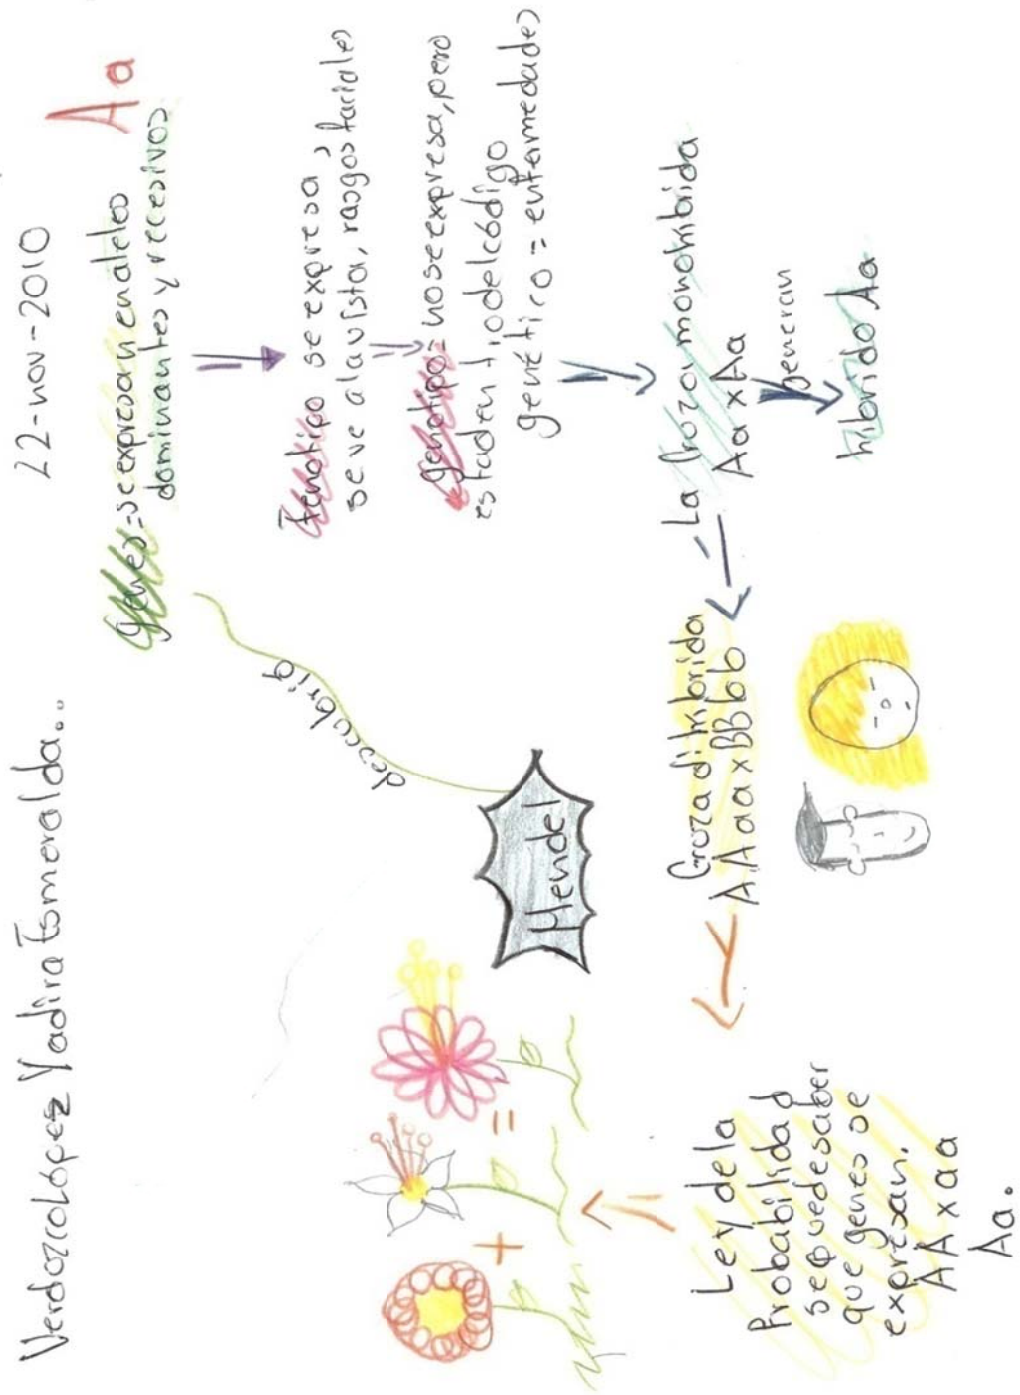 Verdozco López Yadira Esmeralda..
22-nov-2010
Genes = se expresan en aleleo
dominantes y recesivos
Aa
descubrió
Mendel
Fenotipo se expresa,
se ve a la vista, rasgos faciales
genotipo = no se expresa, pero
esta dentro del código
genético = enfermedades
La Croza monohibrida
Aa x Aa
generan
hibrido Aa
Croza dihibrida
AAaa x BBbb
Ley de la
Probabilidad
se puede saber
que genes se
expresan.
AA x aa
Aa.
+
=